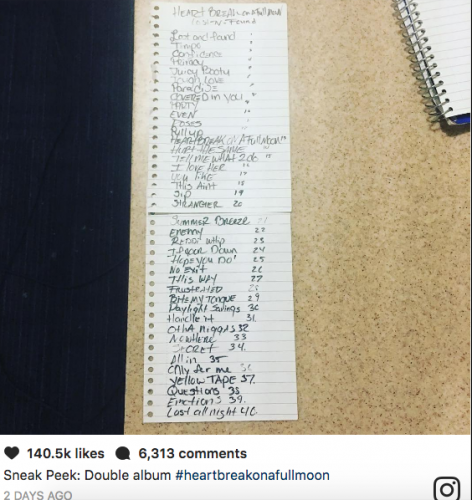 HEARTBREAK on A Full Moon
Lost and found
Tinfs
Confidence
Juicy Booty
Tough Love
Paradise
COVERED in You
PARTY
EVEN
ROSES
Pull up
HEARTBREAK ON A Full Moon"
HURT THE SAME
TELL ME WHAT 2 do
I love HER
You like 17
This Aint 18
Sip 19
STRANGER 20
Summer Breeze 21
Enemy 22
23
Down 24
Hope you Do 25
No Exit 26
This WAY 27
FRUSTRATED 28
BITE MY TONGUE 29
Daylight Savings 30
Handle it 31.
OtHA Niggas 32
NowHERE 33
SECRET 34.
All in 35
Only for me 36
YELLOW TAPE 37.
Questions 38
Emotions 39.
Last all night 40.
140.5k likes 6,313 comments
Sneak Peek: Double album #heartbreakonafullmoon
2 DAYS AGO